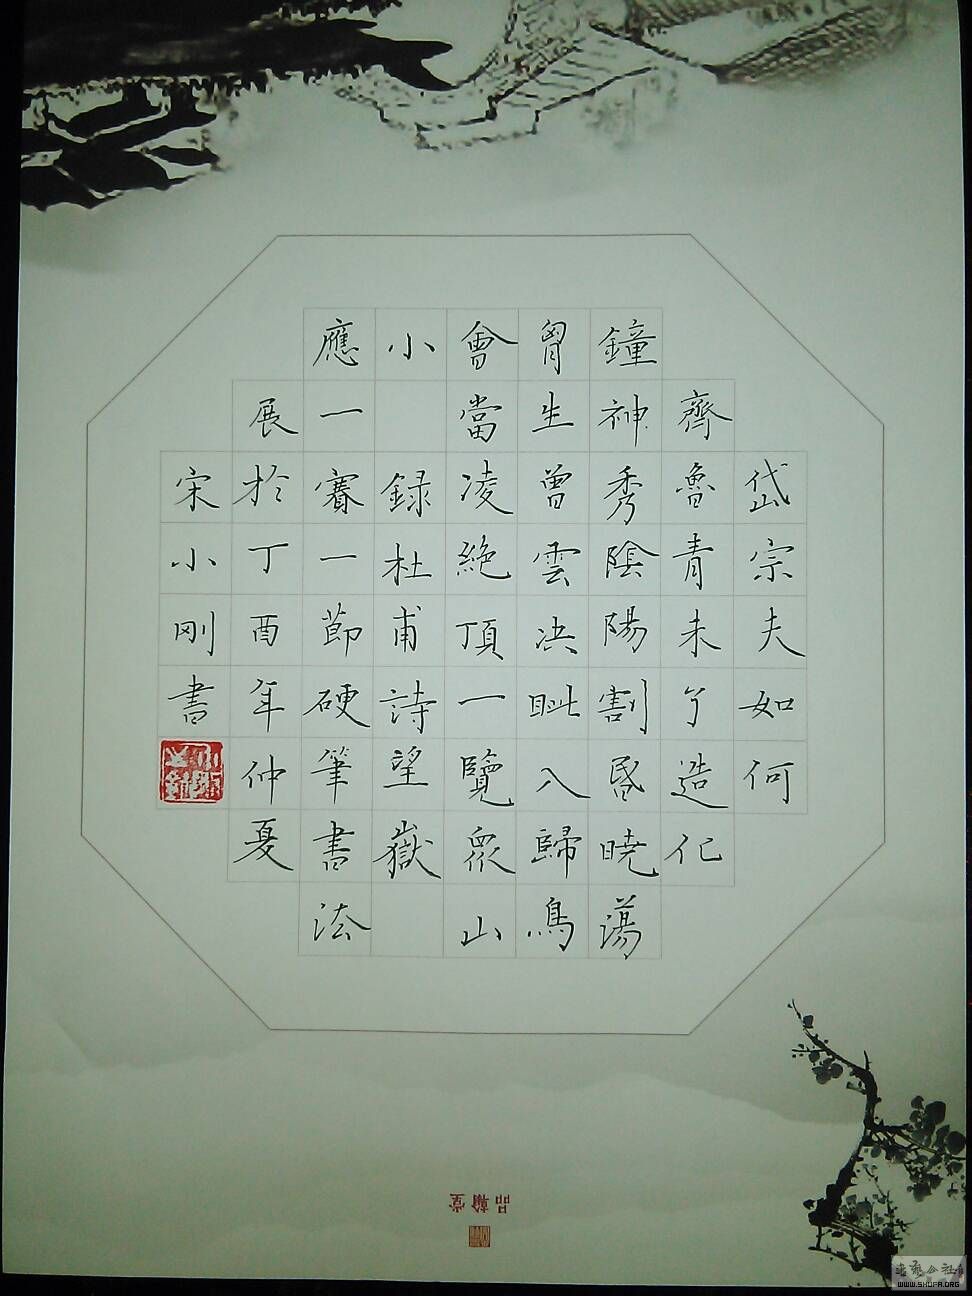 岱宗夫如何
齊魯青未了造化
鐘神秀陰陽割昏曉蕩
胷生曾雲决眦入歸鳥
會當凌絶頂一覽眾山
小 録杜甫詩望嶽
應一賽一節硬筆書法
展於丁酉年仲夏
宋小刚書
品翰堂
WWW.SHUFA.ORG